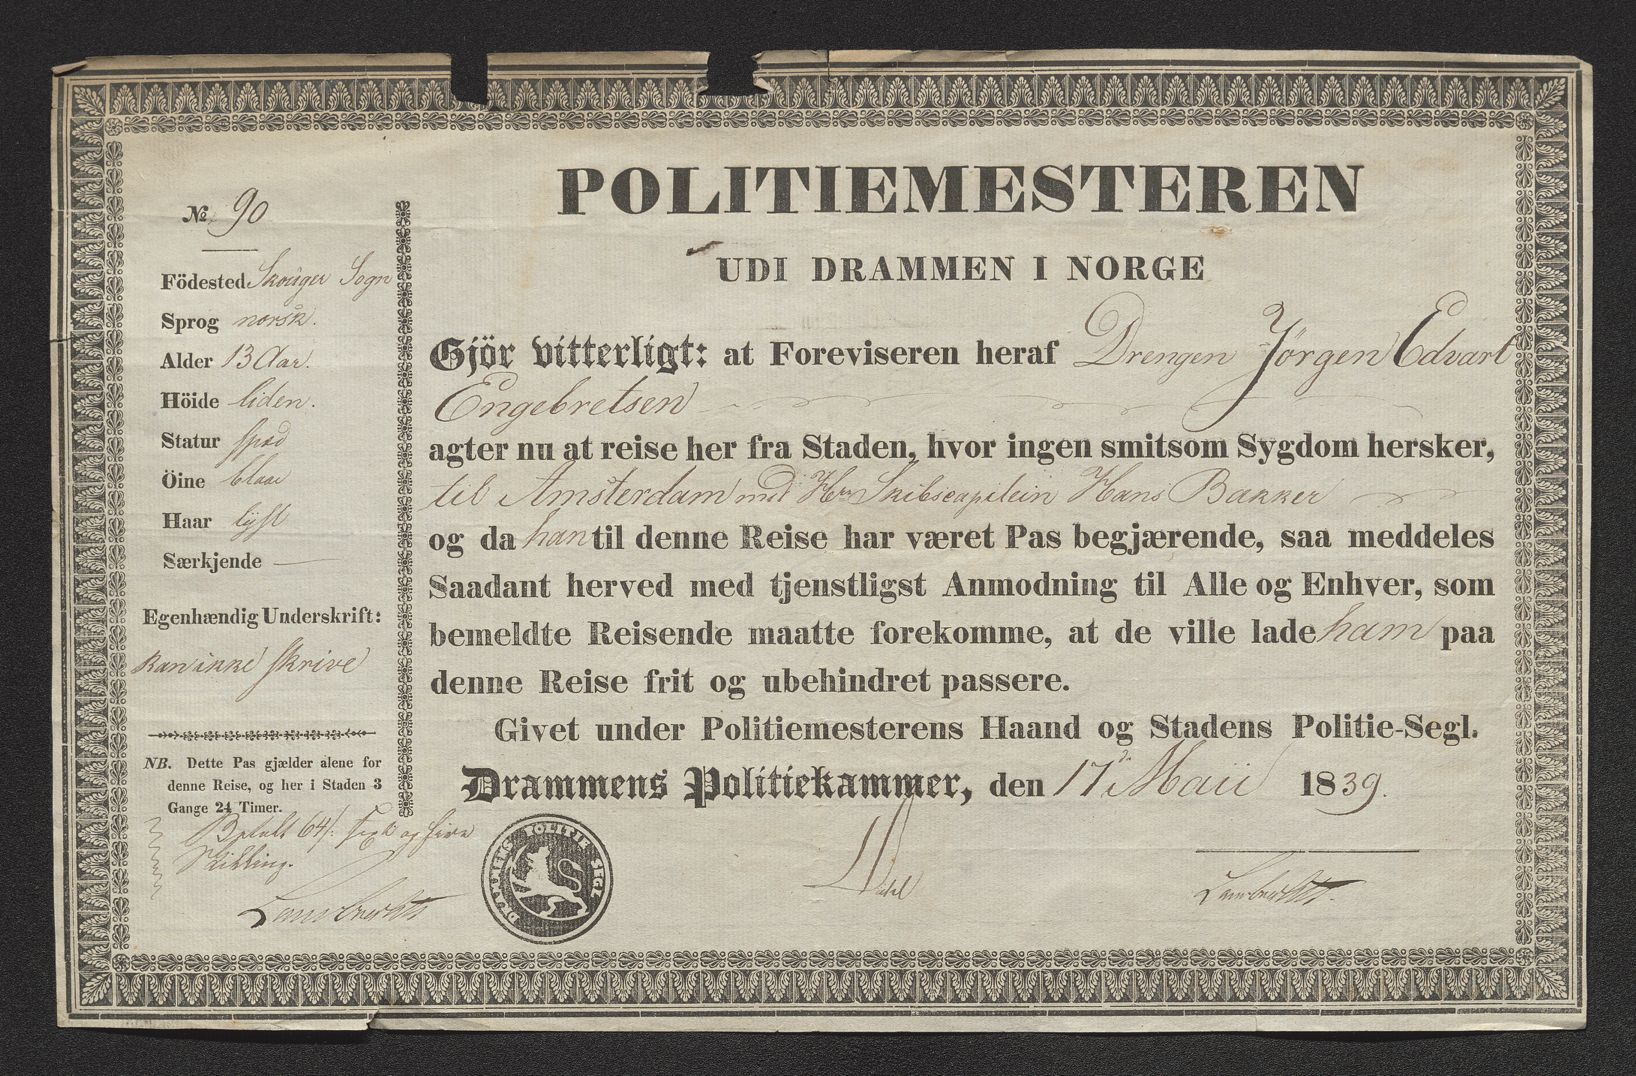 № 90
Födested Skouger Sogn
Sprog norsk.
Alder 13 Aar.
Höide liden.
Statur spæd
Öine blaae
Haar lyst
Særkjende —
Egenhændig Underskrift:
kan ikke skrive
NB. Dette Pas gjælder alene for
denne Reise, og her i Staden 3
Gange 24 Timer.
Betalt 64/: sex og fire
Skilling.
Lambrechts
POLITIEMESTEREN
UDI DRAMMEN I NORGE
Gjör vitterligt: at Foreviseren heraf Drengen Jörgen Edvart
Engebretsen
agter nu at reise her fra Staden, hvor ingen smitsom Sygdom hersker,
til Amsterdam med Hr Skibscapitein Hans Bakker
og da han til denne Reise har været Pas begjærende, saa meddeles
Saadant herved med tjenstligst Anmodning til Alle og Enhver, som
bemeldte Reisende maatte forekomme, at de ville lade ham paa
denne Reise frit og ubehindret passere.
Givet under Politiemesterens Haand og Stadens Politie-Segl.
Drammens Politiekammer, den 17 Maii 1839.
POLITIE SEGL
Lambrechts.